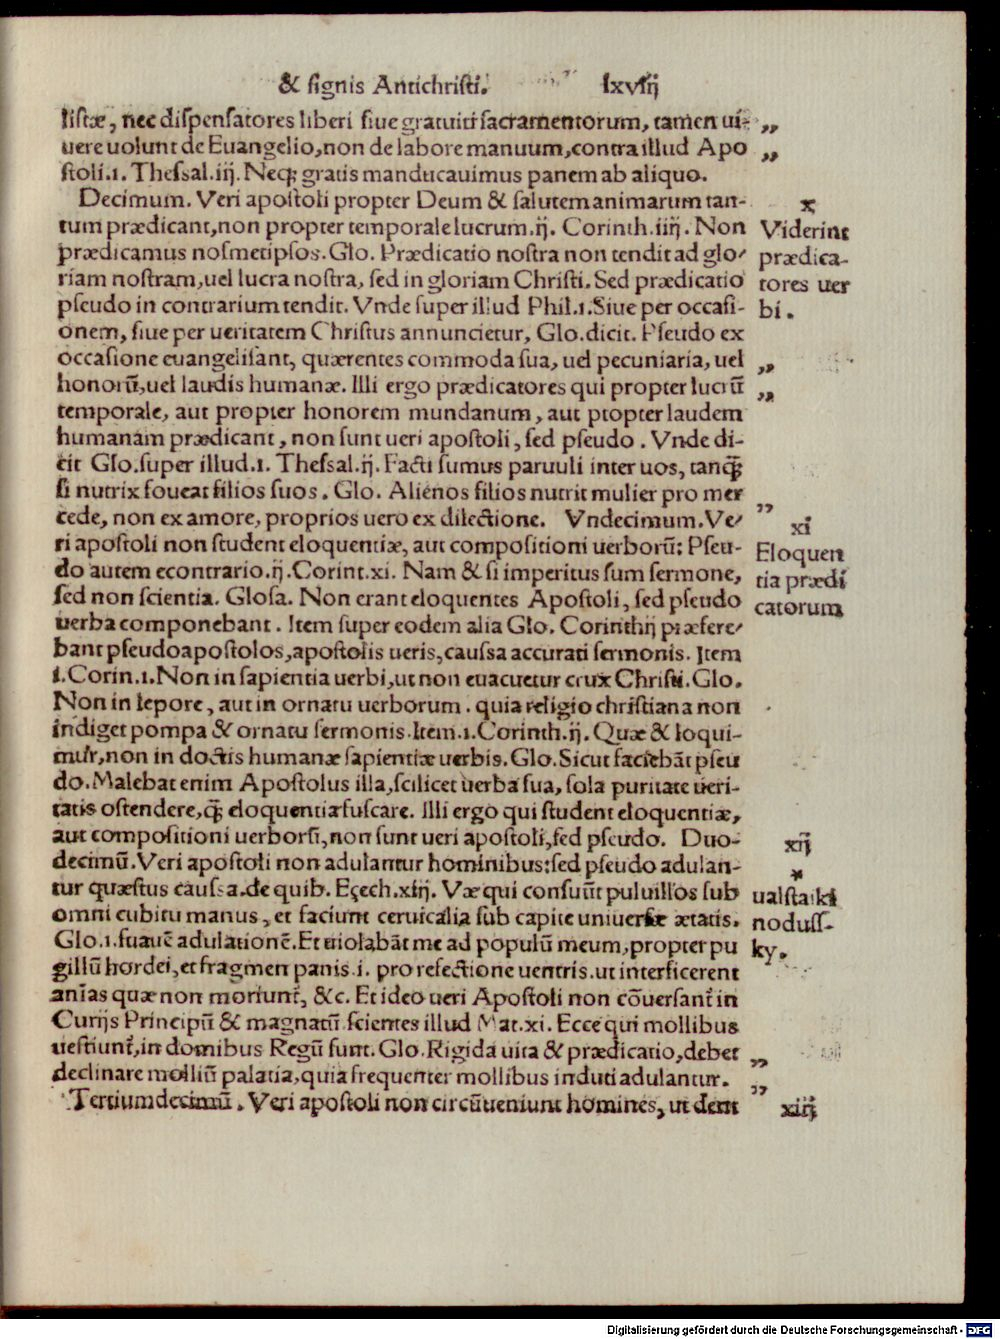 & signis Antichristi. lxviij
listæ, nec dispensatores liberi siue gratuiti sacramentorum, tamen ui- „
uere uolunt de Euangelio, non de labore manuum, contra illud Apo „
stoli.1. Thessal.iij. Neq; gratis manducauimus panem ab aliquo.
Decimum. Veri apostoli propter Deum & salutem animarum tan- x
tum prædicant, non propter temporale lucrum.ij. Corinth.iiij. Non Viderint
prædicamus nosmetipsos. Glo. Prædicatio nostra non tendit ad glo- prædica-
riam nostram, uel lucra nostra, sed in gloriam Christi. Sed prædicatio tores uer
pseudo in contrarium tendit. Vnde super illud Phil.1. Siue per occasi- bi.
onem, siue per ueritatem Christus annuncietur, Glo. dicit. Pseudo ex
occasione euangelisant, quærentes commoda sua, uel pecuniaria, uel „
honorū, uel laudis humanæ. Illi ergo prædicatores qui propter lucrū „
temporale, aut propter honorem mundanum, aut propter laudem
humanam prædicant, non sunt ueri apostoli, sed pseudo. Vnde di-
cit Glo. super illud.1. Thessal.ij. Facti sumus paruuli inter uos, tanq̄;
si nutrix foueat filios suos. Glo. Alienos filios nutrit mulier pro mer „
cede, non ex amore, proprios uero ex dilectione. Vndecimum. Ve- xi
ri apostoli non student eloquentiæ, aut compositioni uerborū: Pseu- Eloquen
do autem econtrario.ij. Corint.xi. Nam & si imperitus sum sermone, tia prædi
sed non scientia. Glosa. Non erant eloquentes Apostoli, sed pseudo catorum
uerba componebant. Item super eodem alia Glo. Corinthij præfere-
bant pseudoapostolos, apostolis ueris, caussa accurati sermonis. Item
1. Corin.1. Non in sapientia uerbi, ut non euacuetur crux Christi. Glo.
Non in lepore, aut in ornatu uerborum. quia religio christiana non
indiget pompa & ornatu sermonis. Item.1. Corinth.ij. Quæ & loqui-
mur, non in doctis humanæ sapientiæ uerbis. Glo. Sicut faciebāt pseu
do. Malebat enim Apostolus illa, scilicet uerba sua, sola puritate ueri-
tatis ostendere, q̄; eloquentia fuscare. Illi ergo qui student eloquentiæ,
aut compositioni uerborū, non sunt ueri apostoli, sed pseudo. Duo- xij
decimū. Veri apostoli non adulantur hominibus: sed pseudo adulan- *
tur quæstus caussa. de quib. Eçech.xiij. Væ qui consuūt puluillos sub ualstaiki
omni cubitu manus, et faciunt ceruicalia sub capite uniuersæ ætatis. noduss-
Glo.1. suauē adulationē. Et uiolabāt me ad populū meum, propter pu ky.
gillū hordei, et fragmen panis.i. pro refectione uentris. ut interficerent
anīas quæ non moriunt̄, &c. Et ideo ueri Apostoli non cōuersant̄ in
Curijs Principū & magnatū scientes illud Mat.xi. Ecce qui mollibus
uestiunt̄, in domibus Regū sunt. Glo. Rigida uita & prædicatio, debet „
declinare molliū palatia, quia frequenter mollibus induti adulantur. „
Tertiumdecimū. Veri apostoli non circūueniunt homines, ut dent xiij
Digitalisierung gefördert durch die Deutsche Forschungsgemeinschaft - DFG